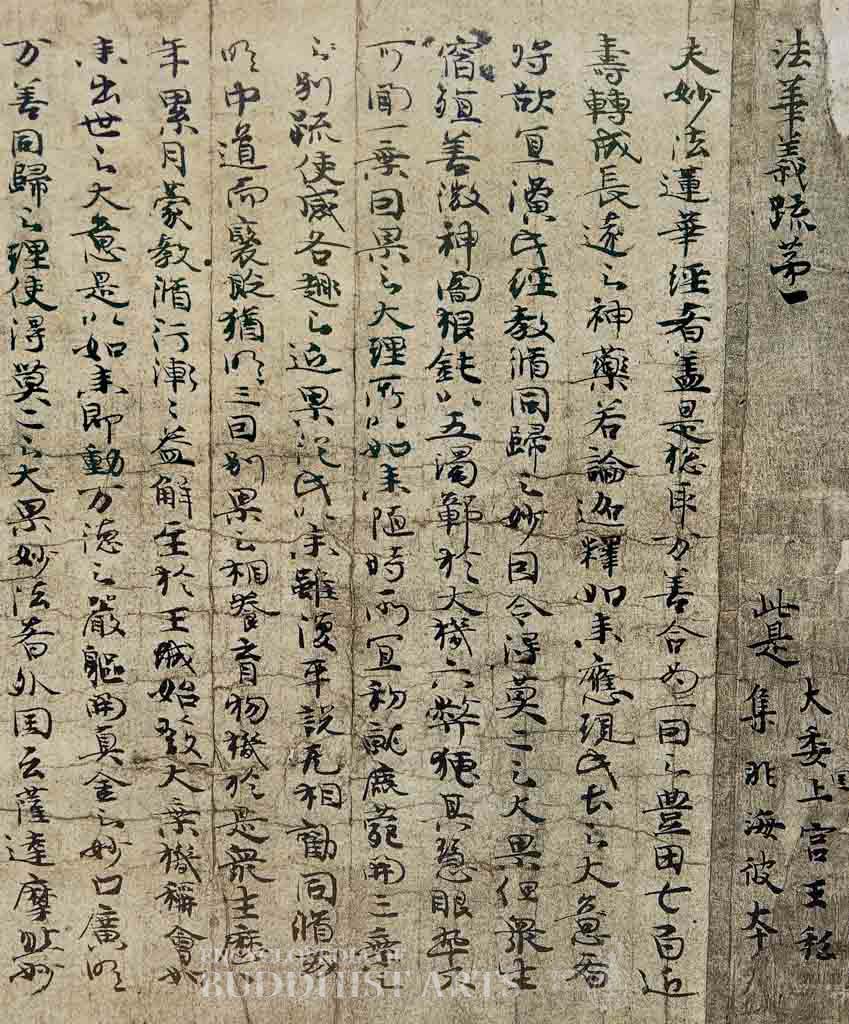 法華義疏第一
此是
大委国上宮王私
集非海彼夲
夫妙法蓮華經者盖是惣取万善合為一因之豊田七百近
壽轉成長遠之神藥若論迦釋如来應現此土之大意者
将欲宜演此經教脩同歸之妙因令得莫二之大果但衆生
宿殖善微神闇根鈍以五濁鄣於大機六弊掩其慧眼卒不
可聞一乗因果之大理所以如来随時所宜初就鹿苑開三乗
之別疏使感各趣之近果従此以来雖復平説无相勸同脩或
明中道而襃貶猶明三因別果之相養育物機於是衆生歴
年累月蒙教脩行漸々益解至於王城始發大乗機稱會如
来出世之大意是以如来即動万徳之嚴軀開真金之妙口廣明
万善同歸之理使得莫二之大果妙法者外国云薩達摩然妙
BUDDHIST ARTS